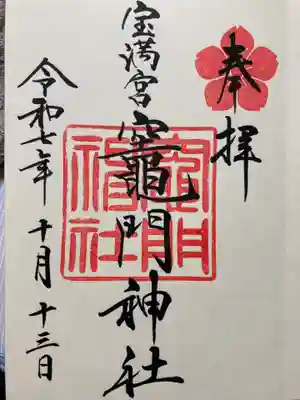 奉拝
宝満宮
竈門神社
令和七年 十月 十三日